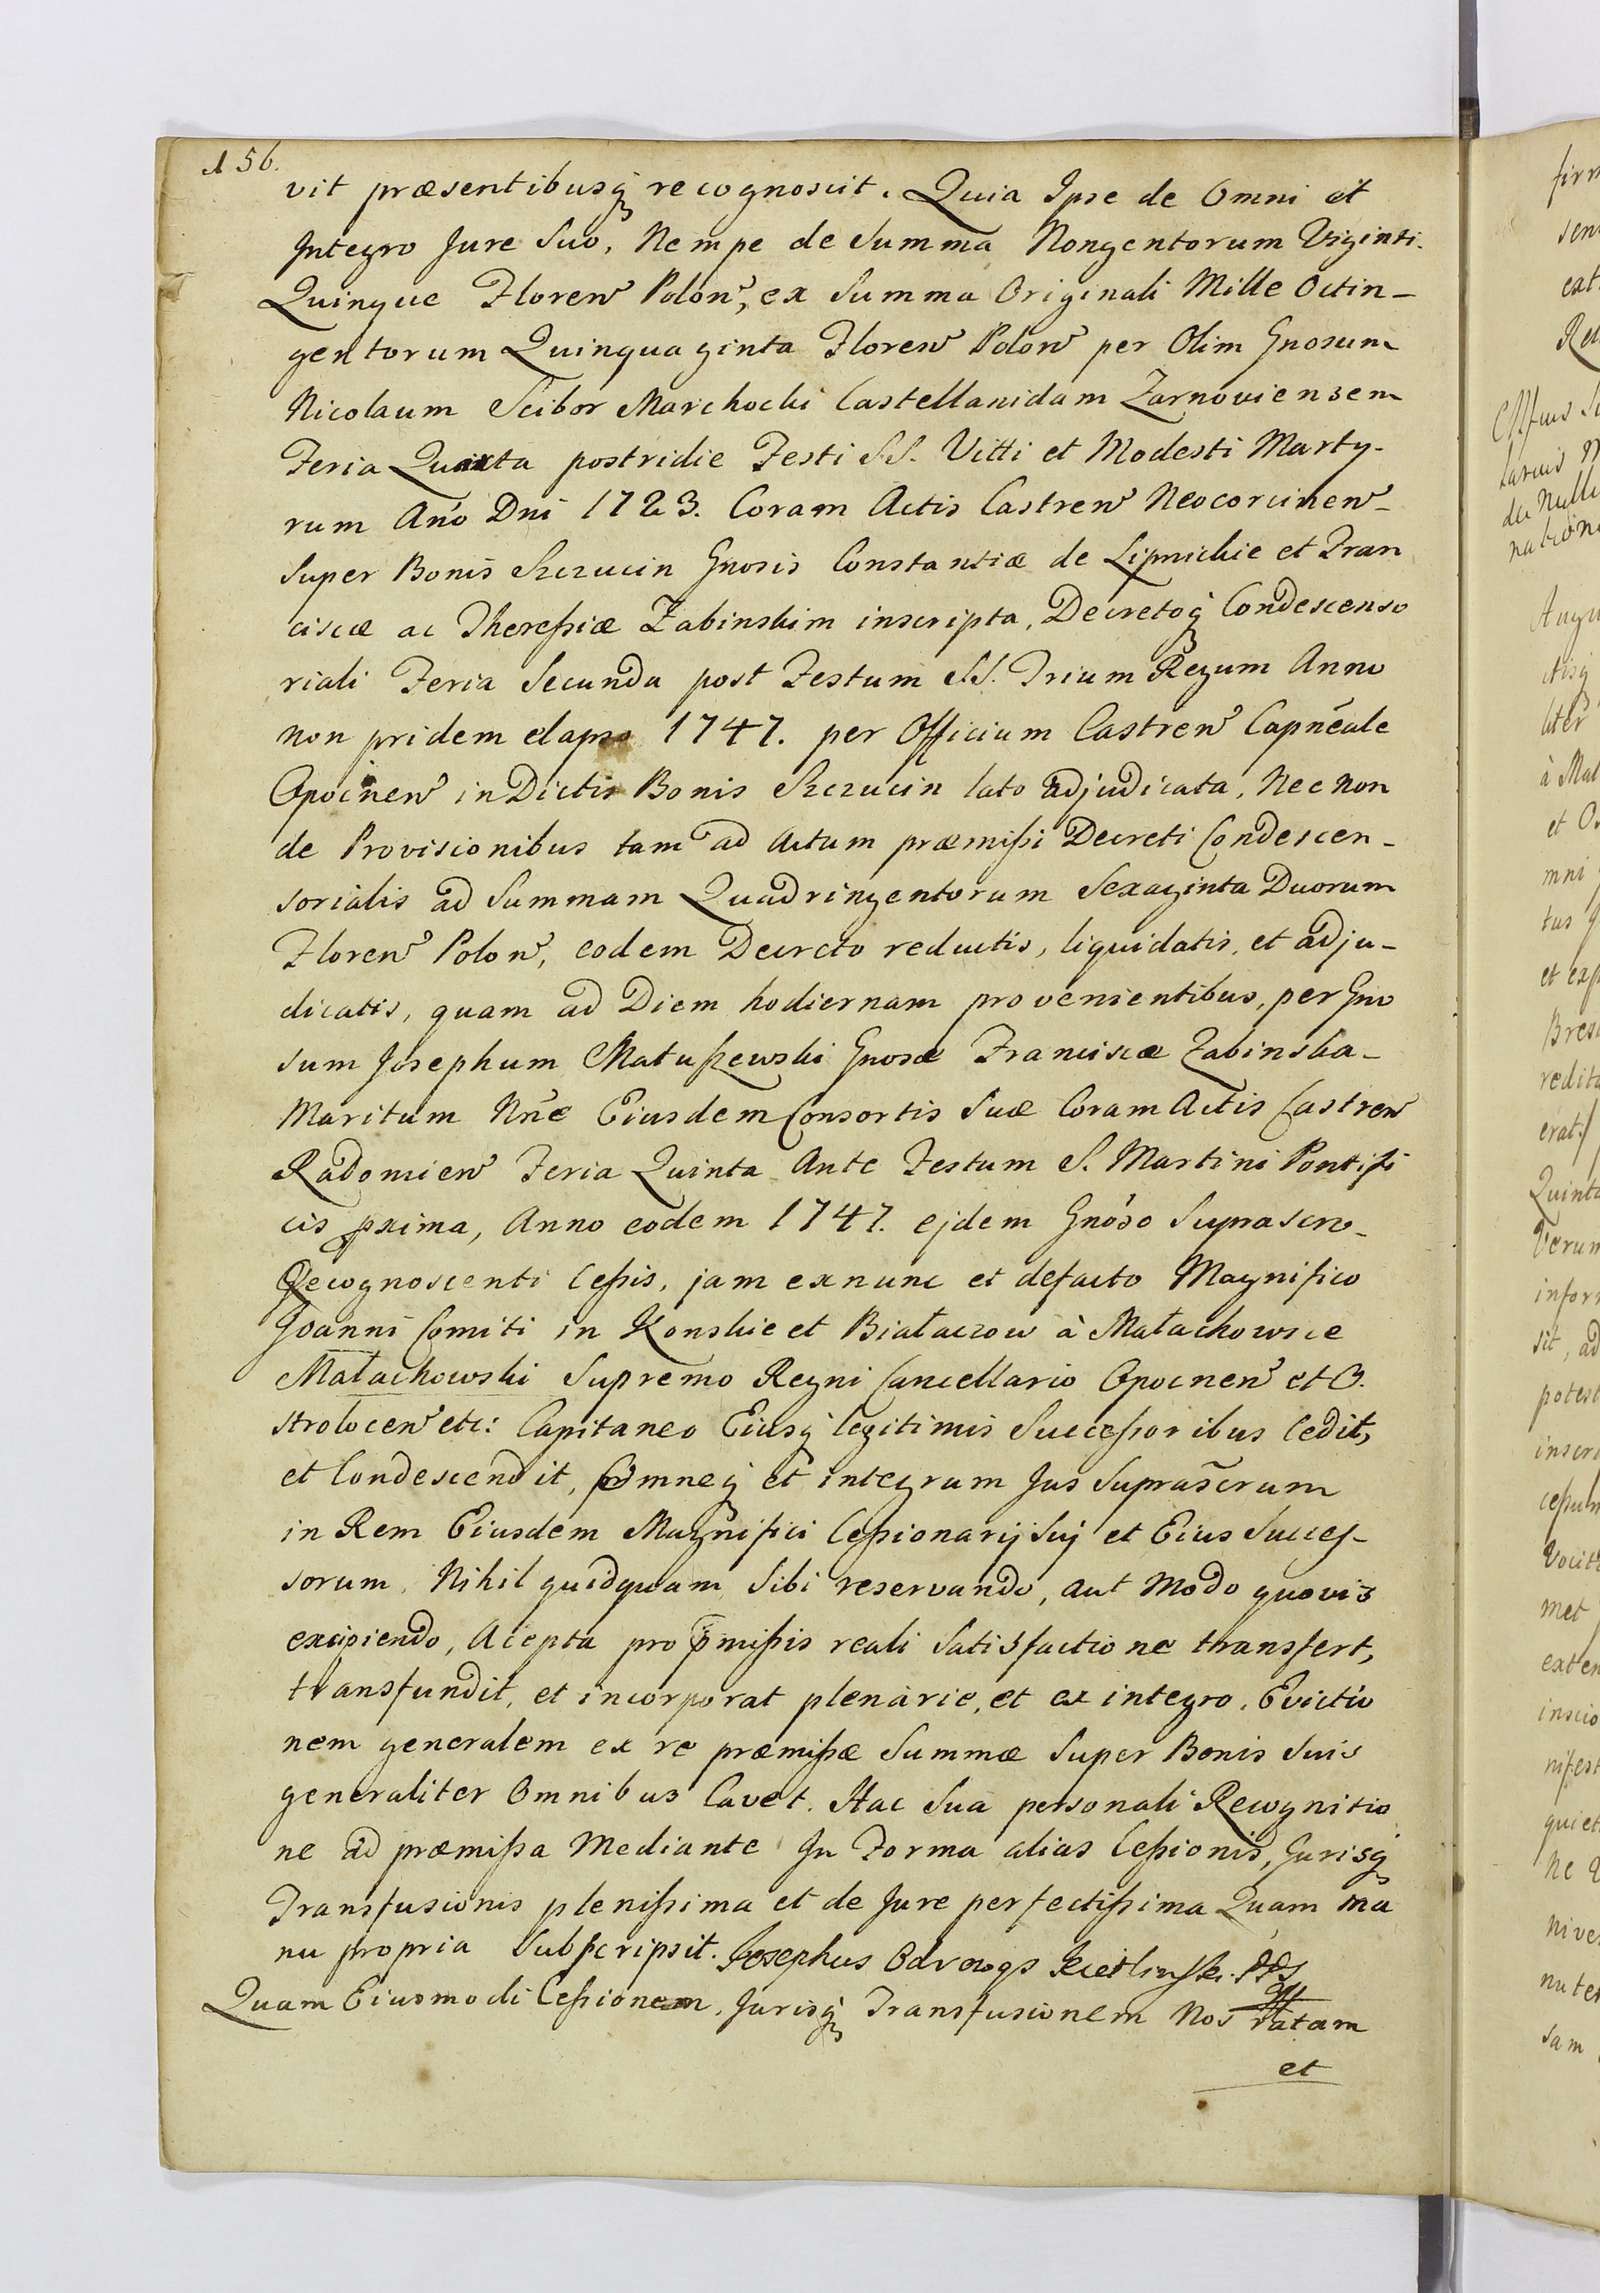 156.
vit præsentibusq recognoscit. Quia Ipse de Omni et
Integro Jure Suo, Nempe de Summa Nongentorum Viginti.
Quinque Floren Polon, ex Summa Originali Mille Octin-
gentorum Quinquaginta Floren Polon per Olim Gnosum
Nicolaum Scibor Marchocki Castellanidam Zarnoviensem
Feria Quarta postridie Festi SS. Vitti et Modesti Marty-
rum Ano Dni 1723. Coram Actis Castren Neocorcinen-
Super Bonis Szczucin Gnosis Constantiæ de Lipnickie et Fran
ciscæ ac Theressiæ Zabinskim inscripta, Decretoq Condescenso
riali Feria Secunda post Festum SS. Trium Regum Anno
non pridem elapso 1747. per Officium Castren Capneale
Opocnen in Dictis Bonis Szczucin lato adjudicata, Nec non
de Provisionibus tam ad Actum præmissi Decreti Condescen-
sorialis ad Summam Quadringentorum Sexaginta Duorum
Floren Polon, eodem Decreto reductis, liquidatis, et adju-
dicatis, quam ad Diem hodiernam provenientibus, per Gno
sum Josephum Matuszewski Gnosæ Franciscæ Zabinska-
Maritum Nne Eiusdem Consortis Suæ Coram Actis Castren
Radomien Feria Quinta Ante Festum S. Martini Pontifi
cis pxima, Anno eodem 1747. ejdem Gnoso Suprascro-
Recognoscenti Cessis, jam exnunc et defacto Magnifico
Joanni Comiti in Konskie et Białaczow à Małachowice
Małachowski Supremo Regni Cancellario Opocnen et O.
strolocen etc: Capitaneo Eiusq legitimis Successoribus Cedit,
et Condescendit, Omneq et integrum Jus Suprascrum
in Rem Eiusdem Magnifici Cessionarij Suj et Eius Succes-
sorum, Nihil quidquam Sibi reservando, aut Modo quovis
excipiendo, Acepta pro pmissis reali Satisfactione transfert,
transfundit, et incorporat plenàrie, et ex integro. Evictio
nem generalem ex re præmissæ Summæ Super Bonis Suis
generaliter Omnibus Cavet. Hac Sua personali Recognitio
ne ad præmissa Mediante In Forma alias Cessionis, Jurisq
Transfusionis plenissima et de Jure perfectissima Quam ma
nu propria Subscripsit. Josephus Odrowąs Kietlinski.
Quam Eiusmodi Cessionem, Jurisq Transfusionem Nos ratam
et